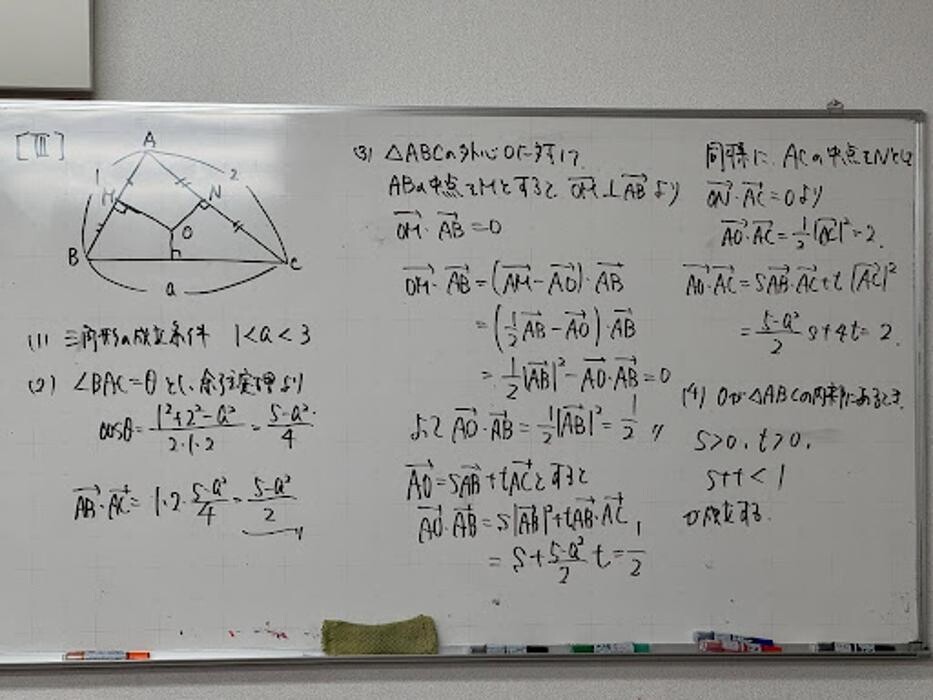 [III]
A
1
2
M
N
O
B
C
a
(1) 三角形の成立条件 1<a<3
(2) ∠BAC=θとし、余弦定理より
cosθ=\frac{1²+2²-a²}{2·1·2}=\frac{5-a²}{4}
\vec{AB}·\vec{AC}=1·2·\frac{5-a²}{4}=\frac{5-a²}{2}
(3) △ABCの外心Oに対して
ABの中点をMとすると \vec{OM}⊥\vec{AB}より
\vec{OM}·\vec{AB}=0
\vec{OM}·\vec{AB}=(\vec{AM}-\vec{AO})·\vec{AB}
=(\frac{1}{2}\vec{AB}-\vec{AO})·\vec{AB}
=\frac{1}{2}|\vec{AB}|²-\vec{AO}·\vec{AB}=0
よって \vec{AO}·\vec{AB}=\frac{1}{2}|\vec{AB}|²=\frac{1}{2}〃
\vec{AO}=s\vec{AB}+t\vec{AC}とすると
\vec{AO}·\vec{AB}=s|\vec{AB}|²+t\vec{AB}·\vec{AC}
=s+\frac{5-a²}{2}t=\frac{1}{2}
同様に、ACの中点をNとして
\vec{ON}·\vec{AC}=0より
\vec{AO}·\vec{AC}=\frac{1}{2}|\vec{AC}|²=2.
\vec{AO}·\vec{AC}=s\vec{AB}·\vec{AC}+t|\vec{AC}|²
=\frac{5-a²}{2}s+4t=2.
(4) Oが△ABCの内部にあるとき、
s>0, t>0,
s+t<1
が成立する.